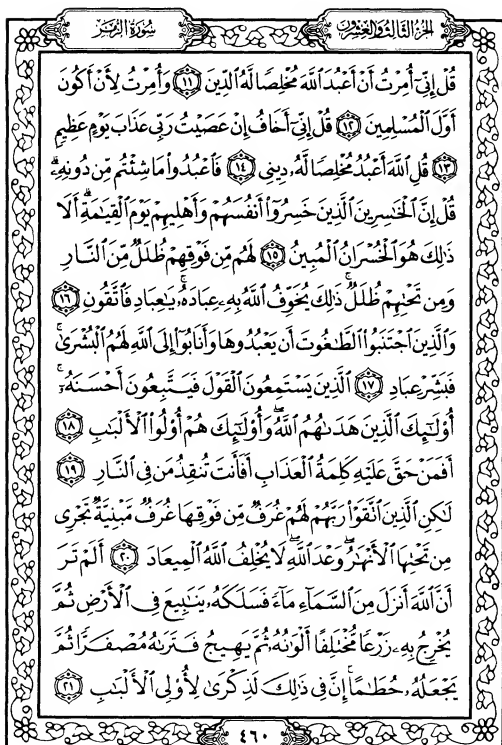 الجزء الثالث والعشرون
سورة الزمر
قُلْ إِنِّىٓ أُمِرْتُ أَنْ أَعْبُدَ ٱللَّهَ مُخْلِصًا لَّهُ ٱلدِّينَ ١١ وَأُمِرْتُ لِأَنْ أَكُونَ
أَوَّلَ ٱلْمُسْلِمِينَ ١٢ قُلْ إِنِّىٓ أَخَافُ إِنْ عَصَيْتُ رَبِّى عَذَابَ يَوْمٍ عَظِيمٍ
١٣ قُلِ ٱللَّهَ أَعْبُدُ مُخْلِصًا لَّهُۥ دِينِى ١٤ فَٱعْبُدُوا۟ مَا شِئْتُم مِّن دُونِهِۦۗ
قُلْ إِنَّ ٱلْخَٰسِرِينَ ٱلَّذِينَ خَسِرُوٓا۟ أَنفُسَهُمْ وَأَهْلِيهِمْ يَوْمَ ٱلْقِيَٰمَةِۗ أَلَا
ذَٰلِكَ هُوَ ٱلْخُسْرَانُ ٱلْمُبِينُ ١٥ لَهُم مِّن فَوْقِهِمْ ظُلَلٌ مِّنَ ٱلنَّارِ
وَمِن تَحْتِهِمْ ظُلَلٌۚ ذَٰلِكَ يُخَوِّفُ ٱللَّهُ بِهِۦ عِبَادَهُۥۚ يَٰعِبَادِ فَٱتَّقُونِ ١٦
وَٱلَّذِينَ ٱجْتَنَبُوا۟ ٱلطَّٰغُوتَ أَن يَعْبُدُوهَا وَأَنَابُوٓا۟ إِلَى ٱللَّهِ لَهُمُ ٱلْبُشْرَىٰۚ
فَبَشِّرْ عِبَادِ ١٧ ٱلَّذِينَ يَسْتَمِعُونَ ٱلْقَوْلَ فَيَتَّبِعُونَ أَحْسَنَهُۥٓۚ
أُو۟لَٰٓئِكَ ٱلَّذِينَ هَدَىٰهُمُ ٱللَّهُۖ وَأُو۟لَٰٓئِكَ هُمْ أُو۟لُوا۟ ٱلْأَلْبَٰبِ ١٨
أَفَمَنْ حَقَّ عَلَيْهِ كَلِمَةُ ٱلْعَذَابِ أَفَأَنتَ تُنقِذُ مَن فِى ٱلنَّارِ ١٩
لَٰكِنِ ٱلَّذِينَ ٱتَّقَوْا۟ رَبَّهُمْ لَهُمْ غُرَفٌ مِّن فَوْقِهَا غُرَفٌ مَّبْنِيَّةٌ تَجْرِى
مِن تَحْتِهَا ٱلْأَنْهَٰرُۖ وَعْدَ ٱللَّهِۖ لَا يُخْلِفُ ٱللَّهُ ٱلْمِيعَادَ ٢٠ أَلَمْ تَرَ
أَنَّ ٱللَّهَ أَنزَلَ مِنَ ٱلسَّمَآءِ مَآءً فَسَلَكَهُۥ يَنَٰبِيعَ فِى ٱلْأَرْضِ ثُمَّ
يُخْرِجُ بِهِۦ زَرْعًا مُّخْتَلِفًا أَلْوَٰنُهُۥ ثُمَّ يَهِيجُ فَتَرَىٰهُ مُصْفَرًّا ثُمَّ
يَجْعَلُهُۥ حُطَٰمًاۚ إِنَّ فِى ذَٰلِكَ لَذِكْرَىٰ لِأُو۟لِى ٱلْأَلْبَٰبِ ٢١
٤٦٠